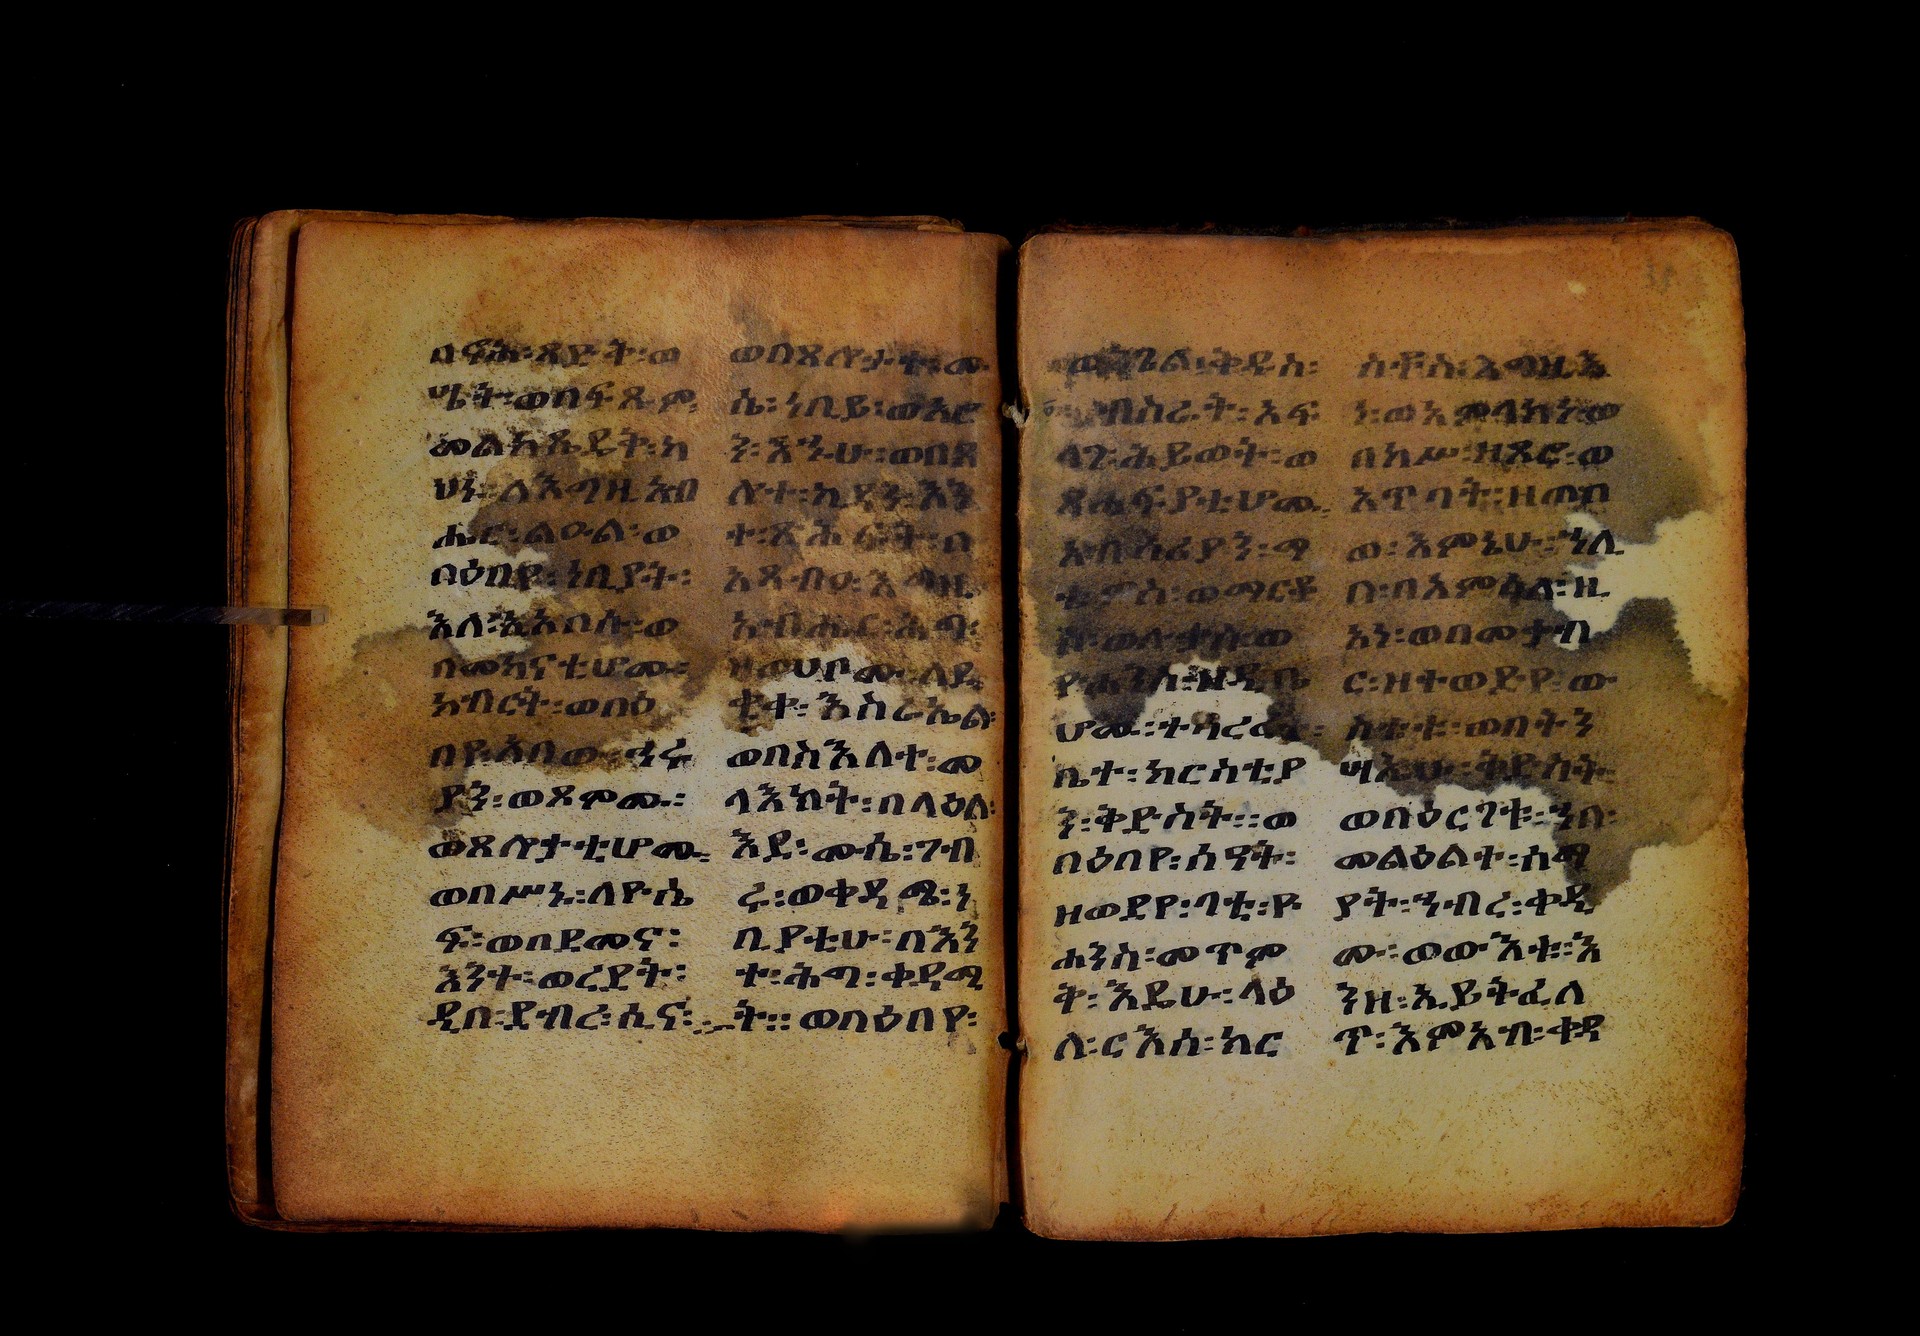 ሜት፡ወበፍጹም፡
መልከጼዴቅ፡ካ
ህን፡ለእግዚአብ
ሔር፡ልዑል፡ወ
በዕበየ፡ነቢያት፡
እለ፡አአኰሱ፡ወ
በመክናቲሆሙ፡
አብርት፡ወበዕ
ያን፡ወጾሞሙ፡
ወጸሎታቲሆሙ፡
ወበሥነ፡ለዮሴ
ፍ፡ወበደመና፡
እንተ፡ወረደት፡
ዲበ፡ደብረ፡ሲና፡
ወበጸሎታቱ፡ሙ
ሴ፡ነቢይ፡ወአሮ
ን፡እኁሁ፡ወበጸ
ሎተ፡ኪዳን፡እን
ተ፡ጽሕፍት፡በ
አጻብዐ፡እግዚ
አብሔር፡ሕግ፡
ዘወሀቦሙ፡ለደ
ቂቀ፡እስራኤል፡
ወበስእለተ፡መ
ላእክት፡በላዕለ፡
እደ፡ሙሴ፡ገብ
ሩ፡ወቀዳሜ፡ነ
ቢያቲሁ፡በእን
ተ፡ሕግ፡ቀዳሚ
ት፡፡ወበዕበየ፡
ወንጌል፡ቅዱስ፡
ብስራት፡አፍ
ላገ፡ሕይወት፡ወ
ጸሐፍያቲሆሙ፡
አብሳሪያን፡ማ
ቴዎስ፡ወማርቆ
ስ፡ወሉቃስ፡ወ
ዮሐንስ፡ዘዲቤ
ሆሙ፡ተሣረረት፡
ቤተ፡ክርስቲያ
ን፡ቅድስት፡፡ወ
በዕበየ፡ሰዓት፡
ዘወደየ፡ባቲ፡ዮ
ሐንስ፡መጥም
ቅ፡እዴሁ፡ላዕ
ለ፡ርእሰ፡ክር
ስቶስ፡እግዚእ
ነ፡ወአምላክነ፡ወ
በከሥ፡ዘጾሮ፡ወ
አጥባት፡ዘጠበ
ወ፡እምኔሁ፡ኀለ
ቡ፡በአምሳለ፡ዚ
አነ፡ወበመቃብ
ር፡ዘተወድየ፡ው
ስቴቱ፡ወበትን
ሣኤሁ፡ቅድስት፡
ወበዕርገቱ፡ኀበ፡
መልዕልተ፡ሰማ
ያት፡ኀብረ፡ቀዲ
ሙ፡፡ወውእቱ፡እ
ንዘ፡ኢይትፈለ
ጥ፡እምአብ፡ቀዳ